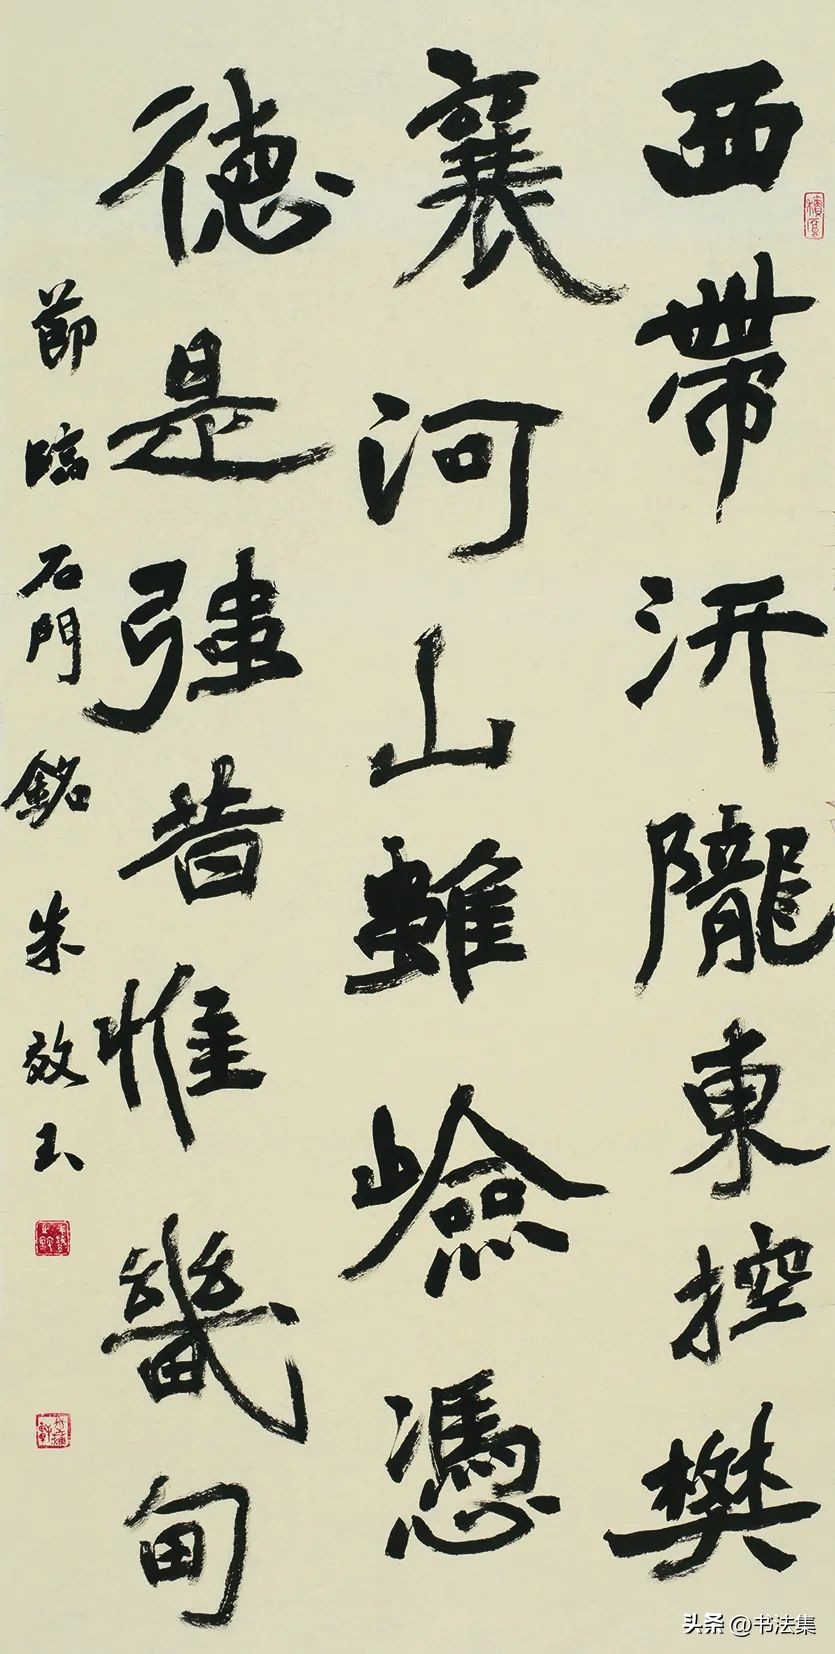 西帶汧隴東控樊
襄河山雖嶮憑
德是強昔惟畿甸
節臨石門銘 朱敬玉
头条 @书法集